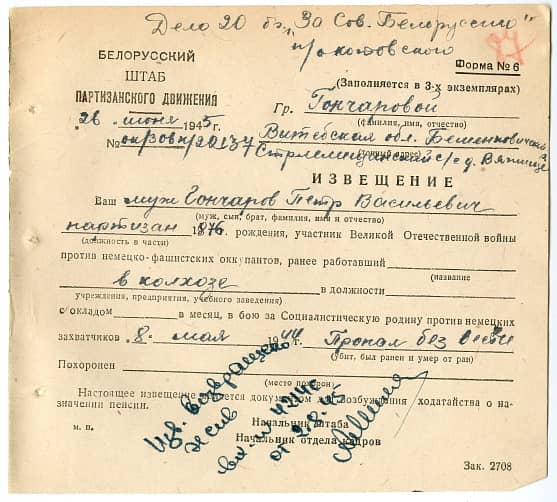 Дело 20 бр. "За Сов. Белоруссию"
97
Форма № 6
БЕЛОРУССКИЙ
ШТАБ
ПАРТИЗАНСКОГО ДВИЖЕНИЯ
(Заполняется в 3-х экземплярах)
Гр. Гончаровой
(фамилия, имя, отчество)
26 июня 1945 г.
Витебская обл.
№
(точный адрес)
ИЗВЕЩЕНИЕ
Ваш муж Гончаров Петр Васильевич
(муж, сын, брат, фамилия, имя и отчество)
партизан рождения, участник Великой Отечественной войны
(должность в части)
против немецко-фашистских оккупантов, ранее работавший
(название
в колхозе в должности
учреждения, предприятия, учебного заведения)
с окладом в месяц, в бою за Социалистическую родину против немецких
захватчиков 8 мая 1944 г. Пропал без вести
(убит, был ранен и умер от ран)
Похоронен
(место похорон)
Настоящее извещение является документом для возбуждения ходатайства о на-
значении пенсии.
м. п.
Начальник штаба
Начальник отдела кадров
Изв. возвращено
жив
вх. № 4240
от 2.8.45
Зак. 2708